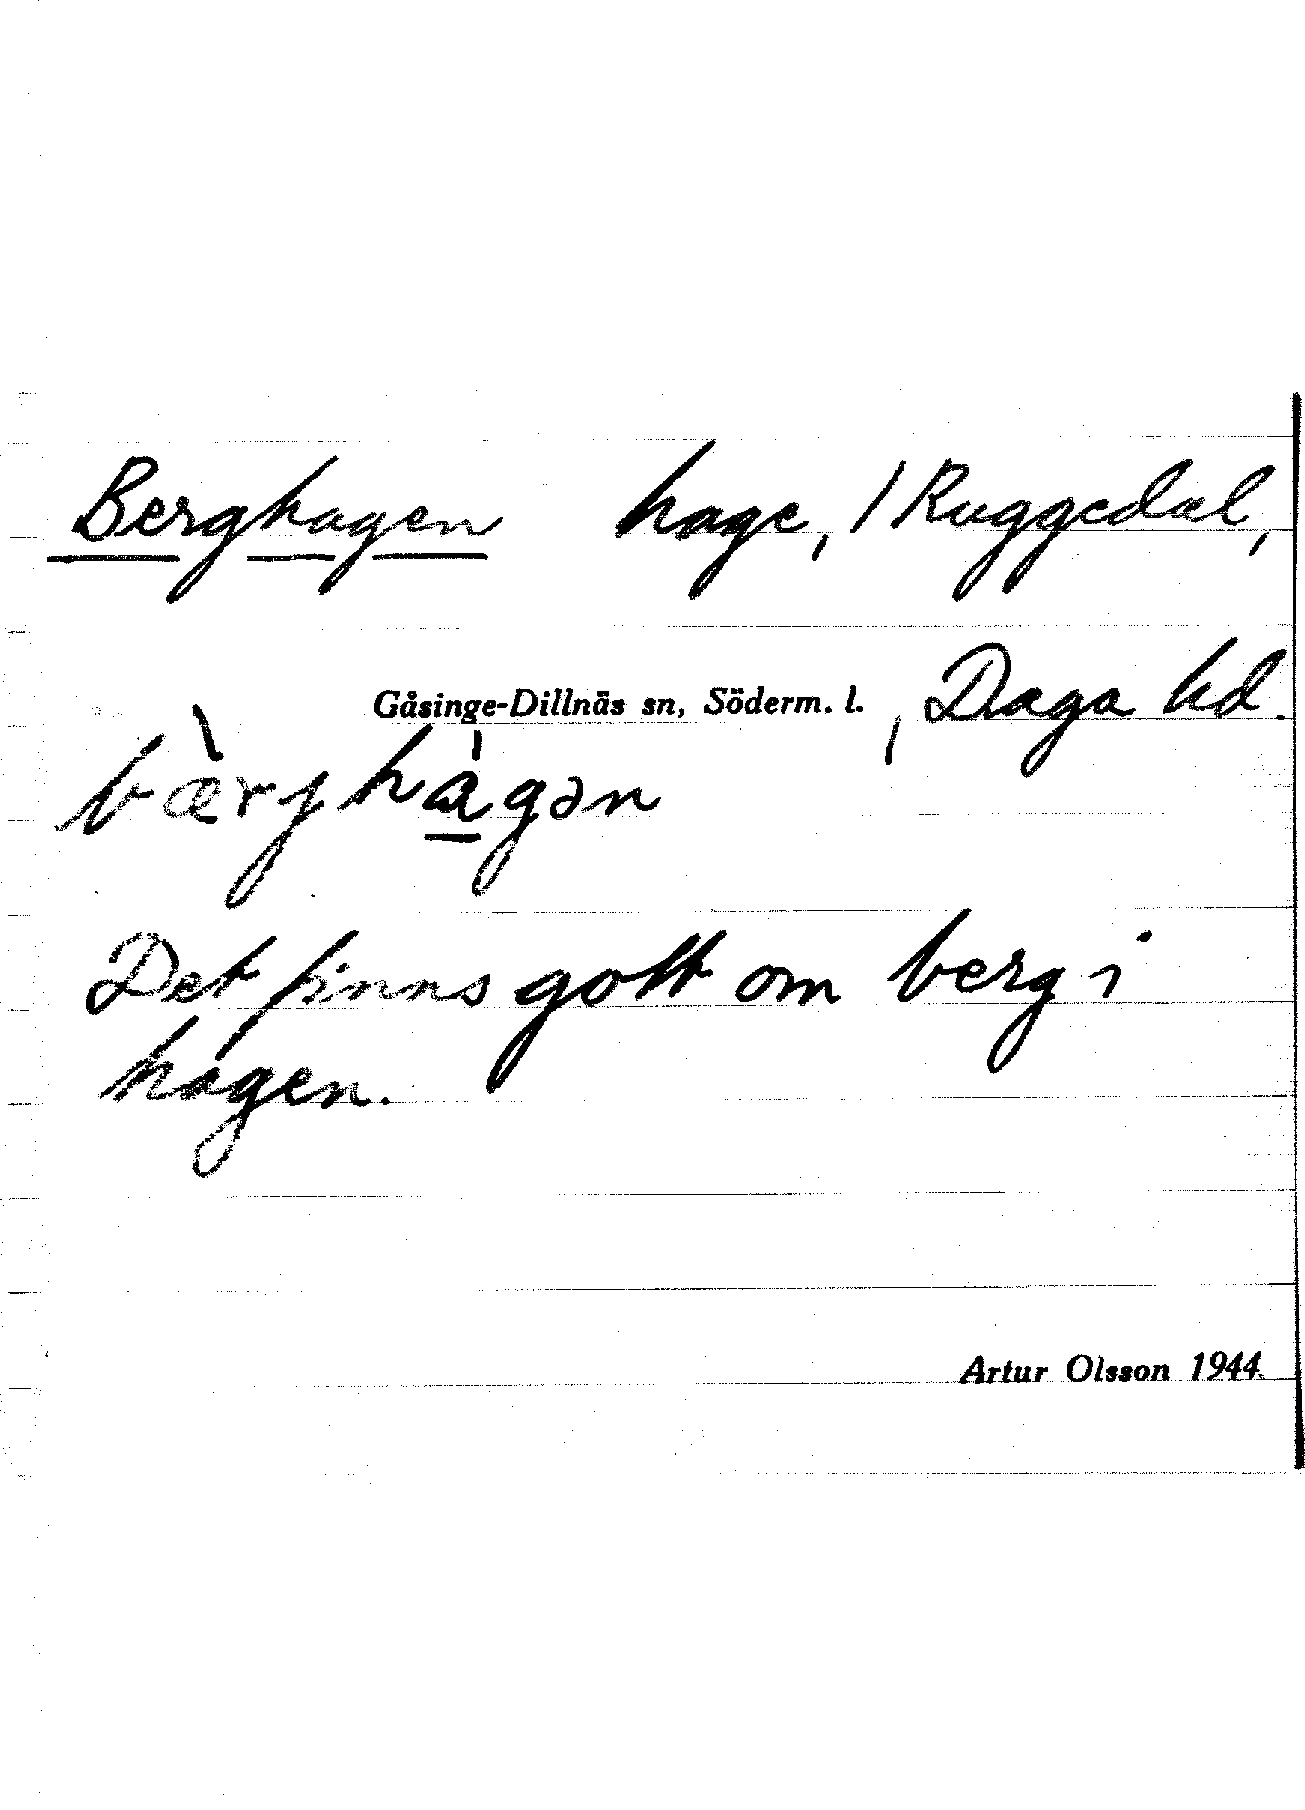 Berghagen hage, / Ruggedal,
Gåsinge-Dillnäs sn, Söderm. l., Daga hd.
bæ̀rjhàgən
Det finns gott om berg i
hagen.
Artur Olsson 1944